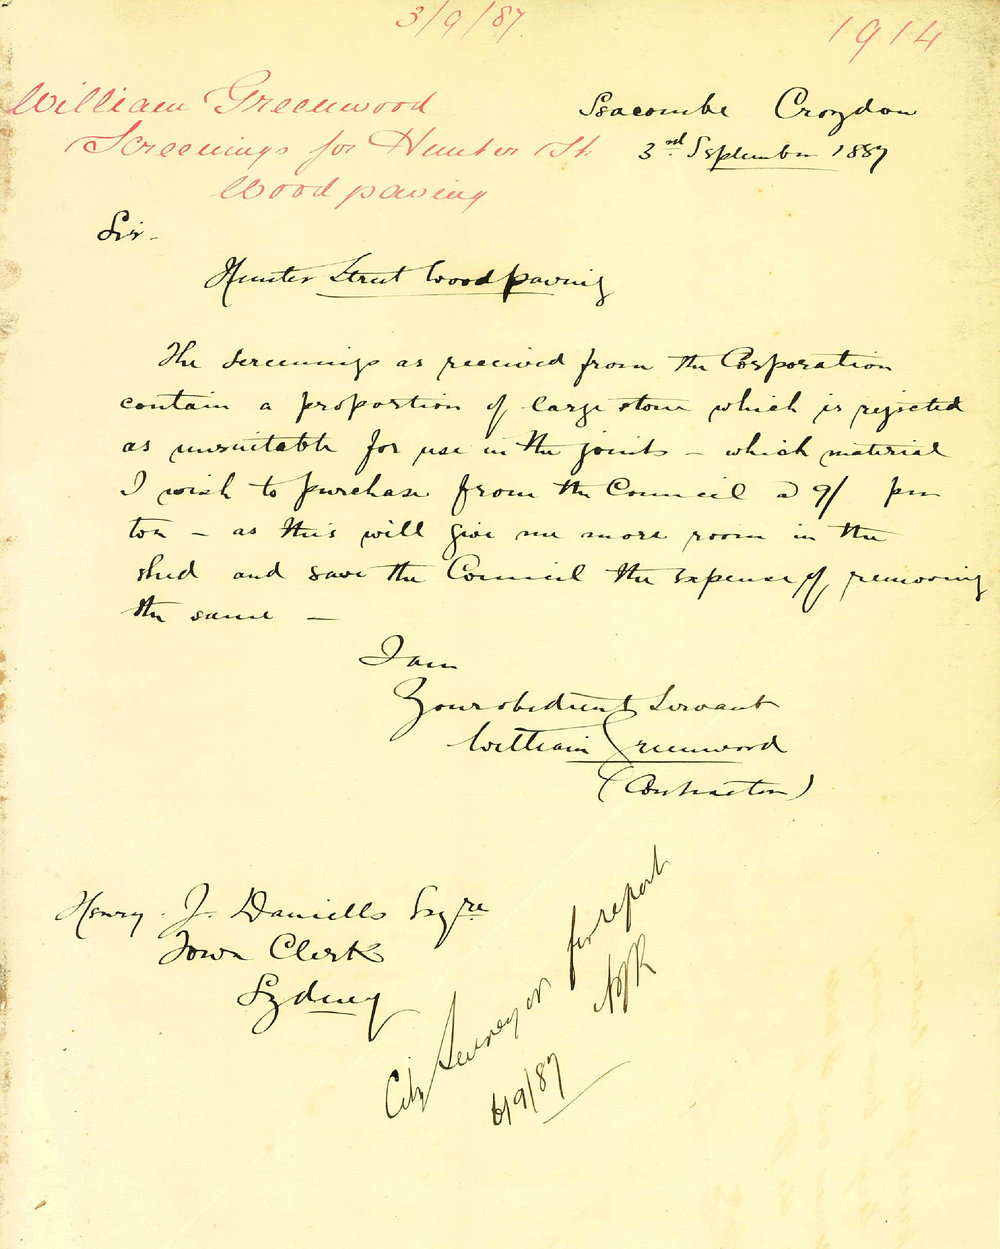 3/9/87.
1914
William Greenwood
Screenings for Hunter St
Wood paving
Seacombe Croydon
3rd September 1887
Sir -
Hunter Street Wood paving
The screenings as received from the Corporation
contain a proportion of large stone which is rejected
as unsuitable for use in the joints - which material
I wish to purchase from the Council @ 9/ per
ton - as this will give me more room in the
shed and save the Council the expense of removing
the same -
I am
Your obedient Servant
William Greenwood
(Contractor)
Henry J. Daniells Esqre
Town Clerk
Sydney
City Surveyor for report
6/9/87